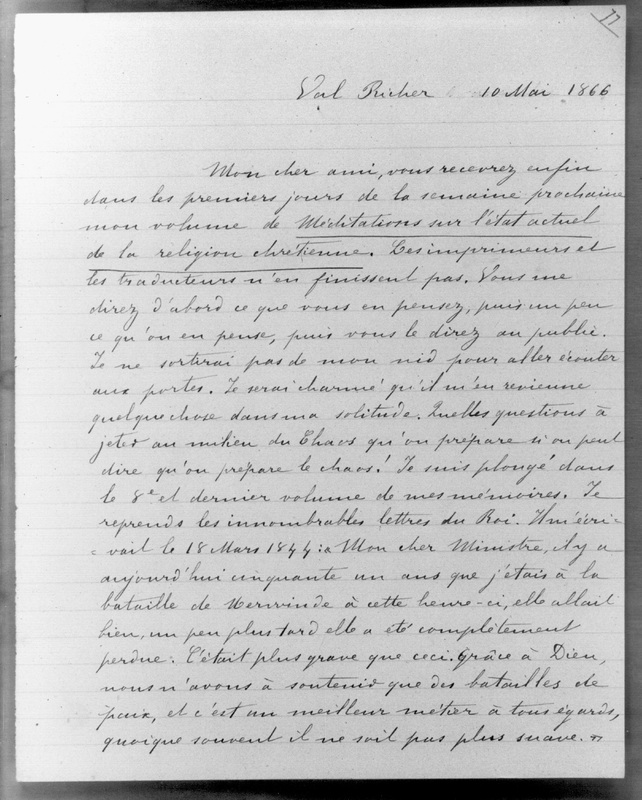 77
Val Richer 10 Mai 1866
Mon cher ami, vous recevrez enfin
dans les premiers jours de la semaine prochaine
mon volume de Méditations sur l'état actuel
de la religion chrétienne. Les imprimeurs et
les traducteurs n'en finissent pas. Vous me
direz d'abord ce que vous en pensez, puis un peu
ce qu'on en pense, puis vous le direz au public.
Je ne sortirai pas de mon nid pour aller écouter
aux portes. Je serai charmé qu'il m'en revienne
quelque chose dans ma solitude. Quelles questions à
jeter au milieu du Chaos qu'on prépare si on peut
dire qu'on prépare le chaos! Je suis plongé dans
le 8e et dernier volume de mes mémoires. Je
reprends les innombrables lettres du Roi. Il m'écri-
-vait le 18 Mars 1844: « Mon cher Ministre, il y a
aujourd'hui cinquante un ans que j'étais à la
bataille de Nerwinde à cette heure-ci, elle allait
bien, un peu plus tard elle a été complètement
perdue. C'était plus grave que ceci. Grâce à Dieu,
nous n'avons à soutenir que des batailles de
paix, et c'est un meilleur métier à tous égards,
quoique souvent il ne soit pas plus suave. »